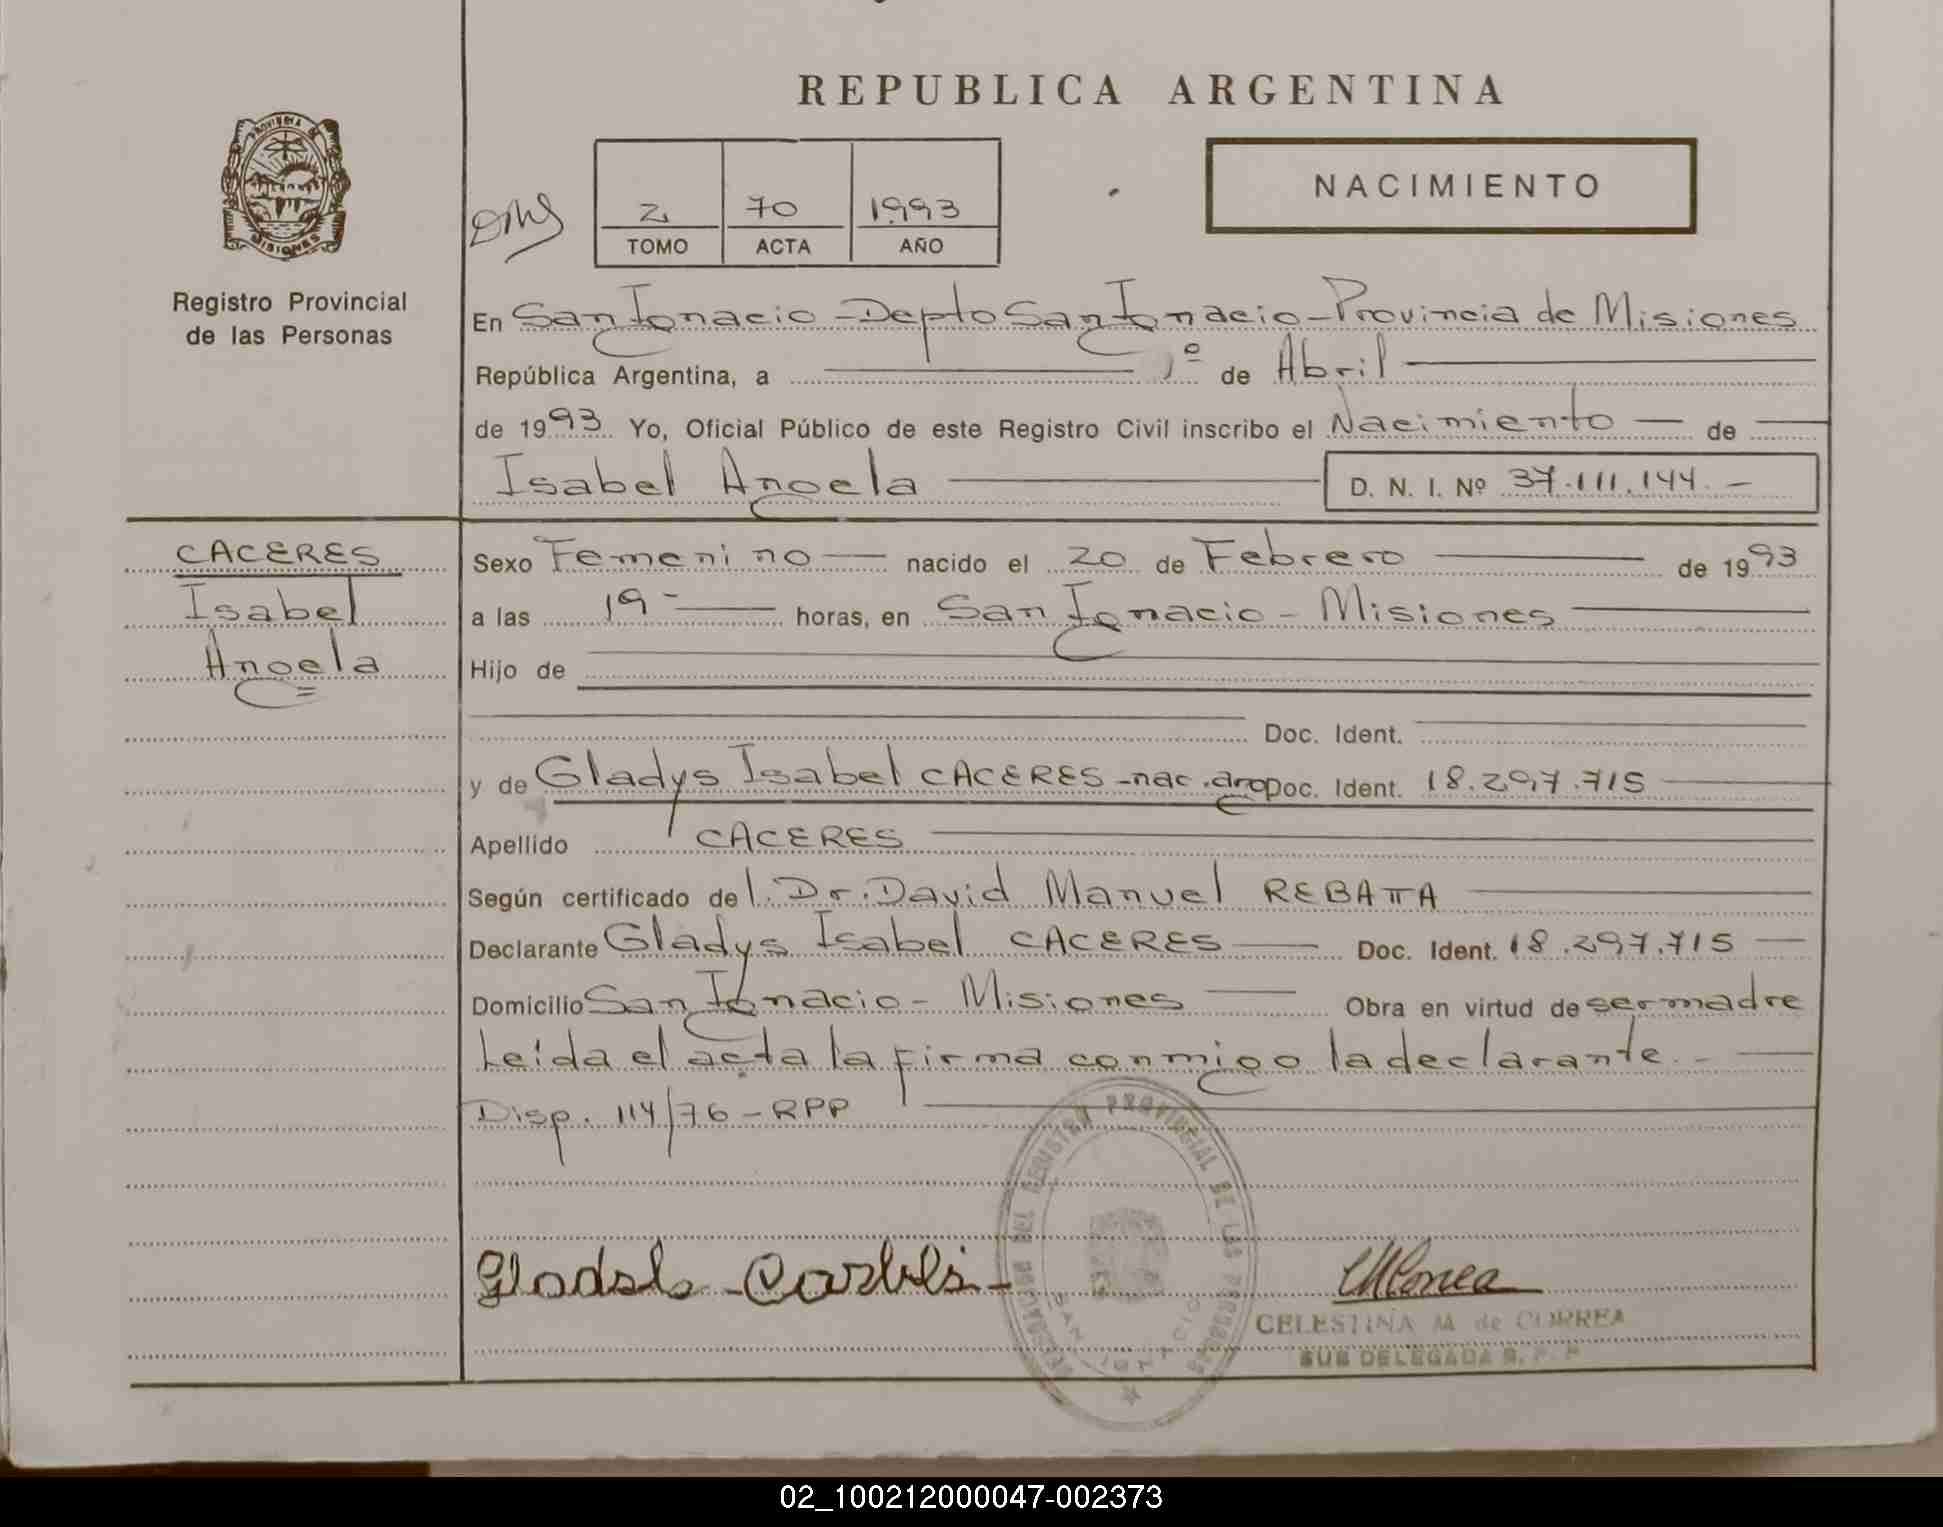 REPUBLICA ARGENTINA
PROVINCIA DE
MISIONES
Registro Provincial
de las Personas
2 70 1993
TOMO ACTA AÑO
NACIMIENTO
En San Ignacio - Depto San Ignacio - Provincia de Misiones
República Argentina, a 1º de Abril
de 1993 Yo, Oficial Público de este Registro Civil inscribo el Nacimiento — de
Isabel Angela D. N. I. Nº 37.111.144.-
CACERES
Isabel
Angela
Sexo Femenino nacido el 20 de Febrero de 1993
a las 19- horas, en San Ignacio - Misiones
Hijo de
Doc. Ident.
y de Gladys Isabel CACERES -nac.arg Doc. Ident. 18.297.715
Apellido CACERES
Según certificado del. Dr. David Manuel REBATTA
Declarante Gladys Isabel CACERES Doc. Ident. 18.297.715
Domicilio San Ignacio - Misiones Obra en virtud de ser madre
Leída el acta la firma conmigo la declarante.-
Disp. 114/76 - RPP
REGISTRO PROVINCIAL DE LAS PERSONAS
SAN IGNACIO
CELESTINA M. de CORREA
SUB DELEGADA R. P. P
02_100212000047-002373